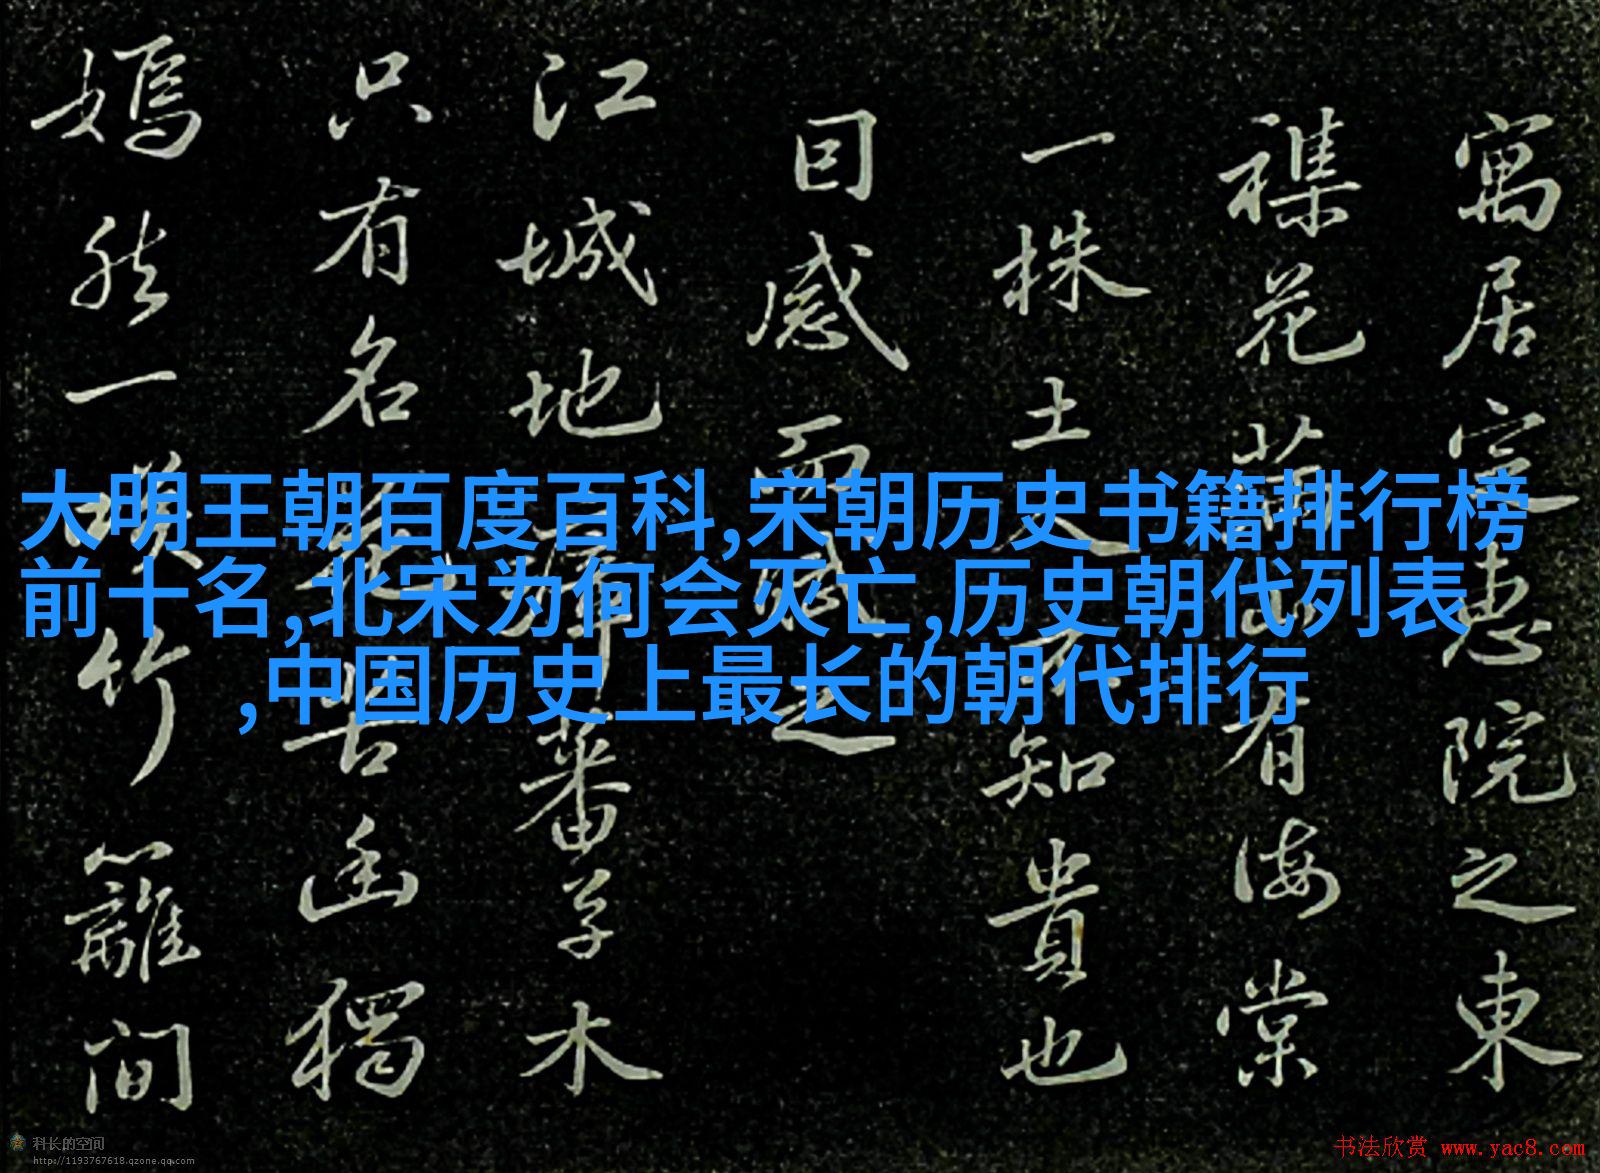 大明王朝百度百科,宋朝历史书籍排行榜
前十名,北宋为何会灭亡,历史朝代列表
,中国历史上最长的朝代排行
寓居定惠院之東
襍花滿山有海棠
一株土人不知貴也
因感而赋之
江城地瘴蕃草木
只有名花苦幽獨
嫣然一笑竹籬間
科长的空间
http://1193767618.qzone.qq.com
书法欣赏 www.yac8.com